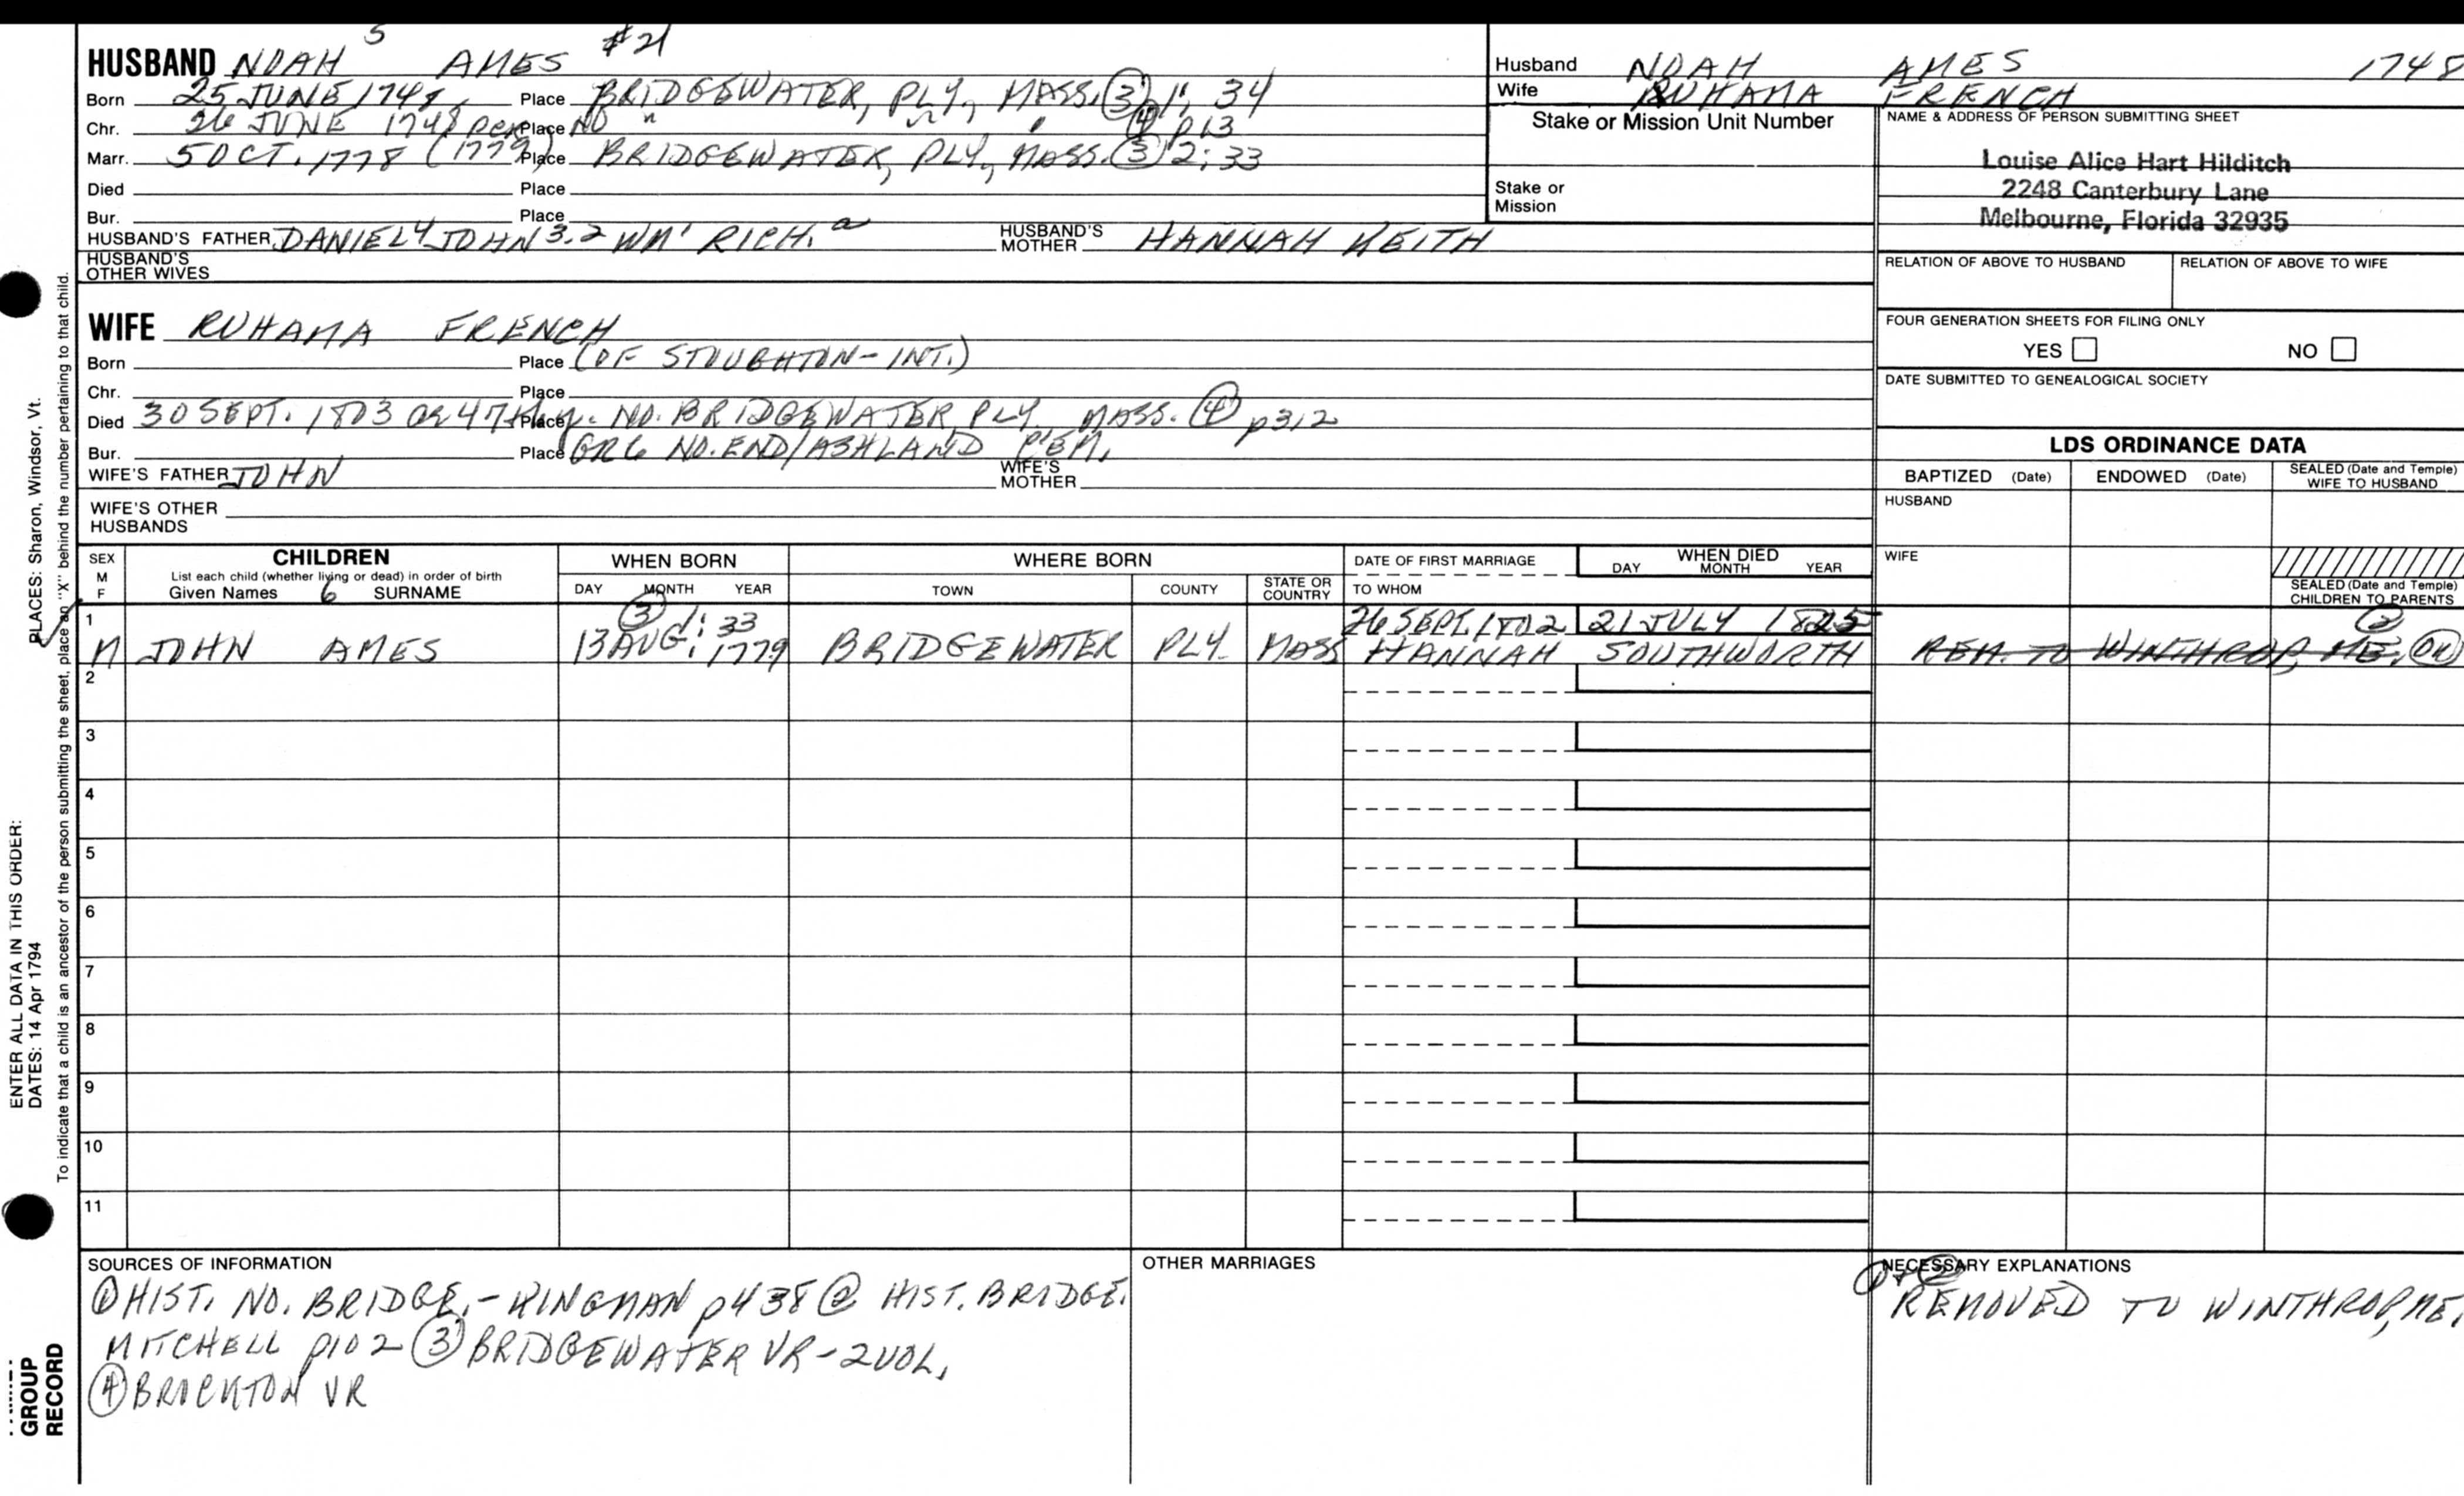 HUSBAND NOAH 5 AMES #21
Born 25 JUNE 1748 Place BRIDGEWATER, PLY, MASS. (3) 1: 34
Chr. 26 JUNE 1748 per Place NO " " " (4) p13
Marr. 5 OCT. 1778 (1779) Place BRIDGEWATER, PLY, MASS. (3) 2:33
Died Place
Bur. Place
HUSBAND'S FATHER DANIEL 4 JOHN 3.2 WM' RICH. a HUSBAND'S MOTHER HANNAH KEITH
HUSBAND'S OTHER WIVES
Husband NOAH AMES 1748
Wife RUHAMA FRENCH
Stake or Mission Unit Number
Stake or Mission
NAME & ADDRESS OF PERSON SUBMITTING SHEET
Louise Alice Hart Hilditch
2248 Canterbury Lane
Melbourne, Florida 32935
RELATION OF ABOVE TO HUSBAND RELATION OF ABOVE TO WIFE
FOUR GENERATION SHEETS FOR FILING ONLY
YES NO
DATE SUBMITTED TO GENEALOGICAL SOCIETY
WIFE RUHAMA FRENCH
Born Place (OF STOUGHTON-INT.)
Chr. Place
Died 30 SEPT. 1803 Place NO. BRIDGEWATER PLY MASS. (4) p312
Bur. Place GR6 NO. END/ASHLAND CEM.
WIFE'S FATHER JOHN WIFE'S MOTHER
WIFE'S OTHER HUSBANDS
LDS ORDINANCE DATA
BAPTIZED (Date) ENDOWED (Date) SEALED (Date and Temple) WIFE TO HUSBAND
HUSBAND
WIFE
SEALED (Date and Temple) CHILDREN TO PARENTS
SEX M F
CHILDREN
List each child (whether living or dead) in order of birth
Given Names 6 SURNAME
WHEN BORN
DAY MONTH YEAR
WHERE BORN
TOWN COUNTY STATE OR COUNTRY
DATE OF FIRST MARRIAGE
TO WHOM
WHEN DIED
DAY MONTH YEAR
1 (3) 1: 33 26 SEPT. 1802 21 JULY 1825 (2)
M JOHN AMES 13 AUG. 1779 BRIDGEWATER PLY MASS HANNAH SOUTHWORTH REM. TO WINTHROP, ME.
2
3
4
5
6
7
8
9
10
11
SOURCES OF INFORMATION
(1) HIST. NO. BRIDGE.- KINGMAN p438 (2) HIST. BRIDGE.
MITCHELL p102 (3) BRIDGEWATER VR-2VOL.
(4) BROCKTON VR
OTHER MARRIAGES
NECESSARY EXPLANATIONS
REMOVED TO WINTHROP, ME.
PLACES: Sharon, Windsor, Vt.
ENTER ALL DATA IN THIS ORDER:
DATES: 14 Apr 1794
To indicate that a child is an ancestor of the person submitting the sheet, place an "X" behind the number pertaining to that child.
GROUP
RECORD